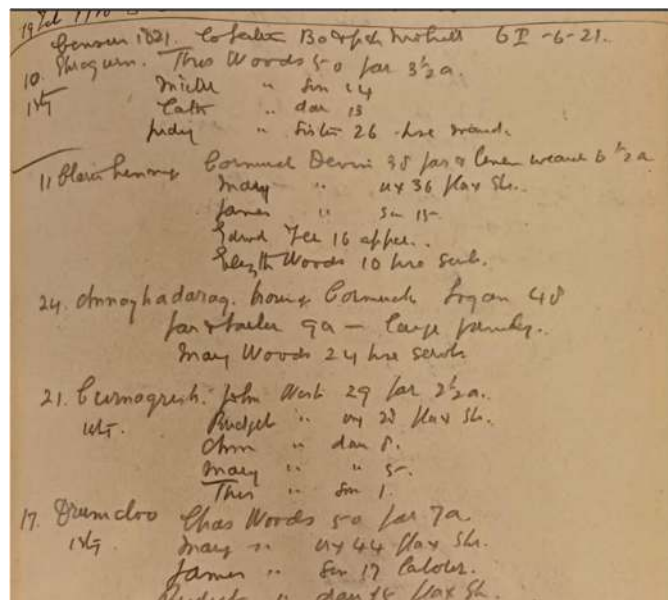 19 Feb
Census 1821. Co Par Mohill 6 I -6-21.
10. Thos Woods 50 far 3½a.
1stg Michl " son 14
Cath " dau 13
Judy " sister 26 hse maid.
11 Cormick Devin 38 far & linen weaver 6½a
Mary " ux 36 flax Shr.
James " son 15.
Edwd Fee 16 appre..
Elizth Woods 10 hse serv.
24. Annaghadarag. house Cormick Logan 48
far & tailor 9a — large family.
Mary Woods 24 hse servt
21. Curnagresh. John Woods 29 far 2½a.
1stg. Bridget " ux 28 flax Shr.
Ann " dau 8.
Mary " " 5.
Thos " son 1.
17. Drumdoo Chas Woods 50 far 7a
1stg Mary " ux 44 flax Shr.
James " son 17 labober.
Bridget " dau 15 flax Sh.